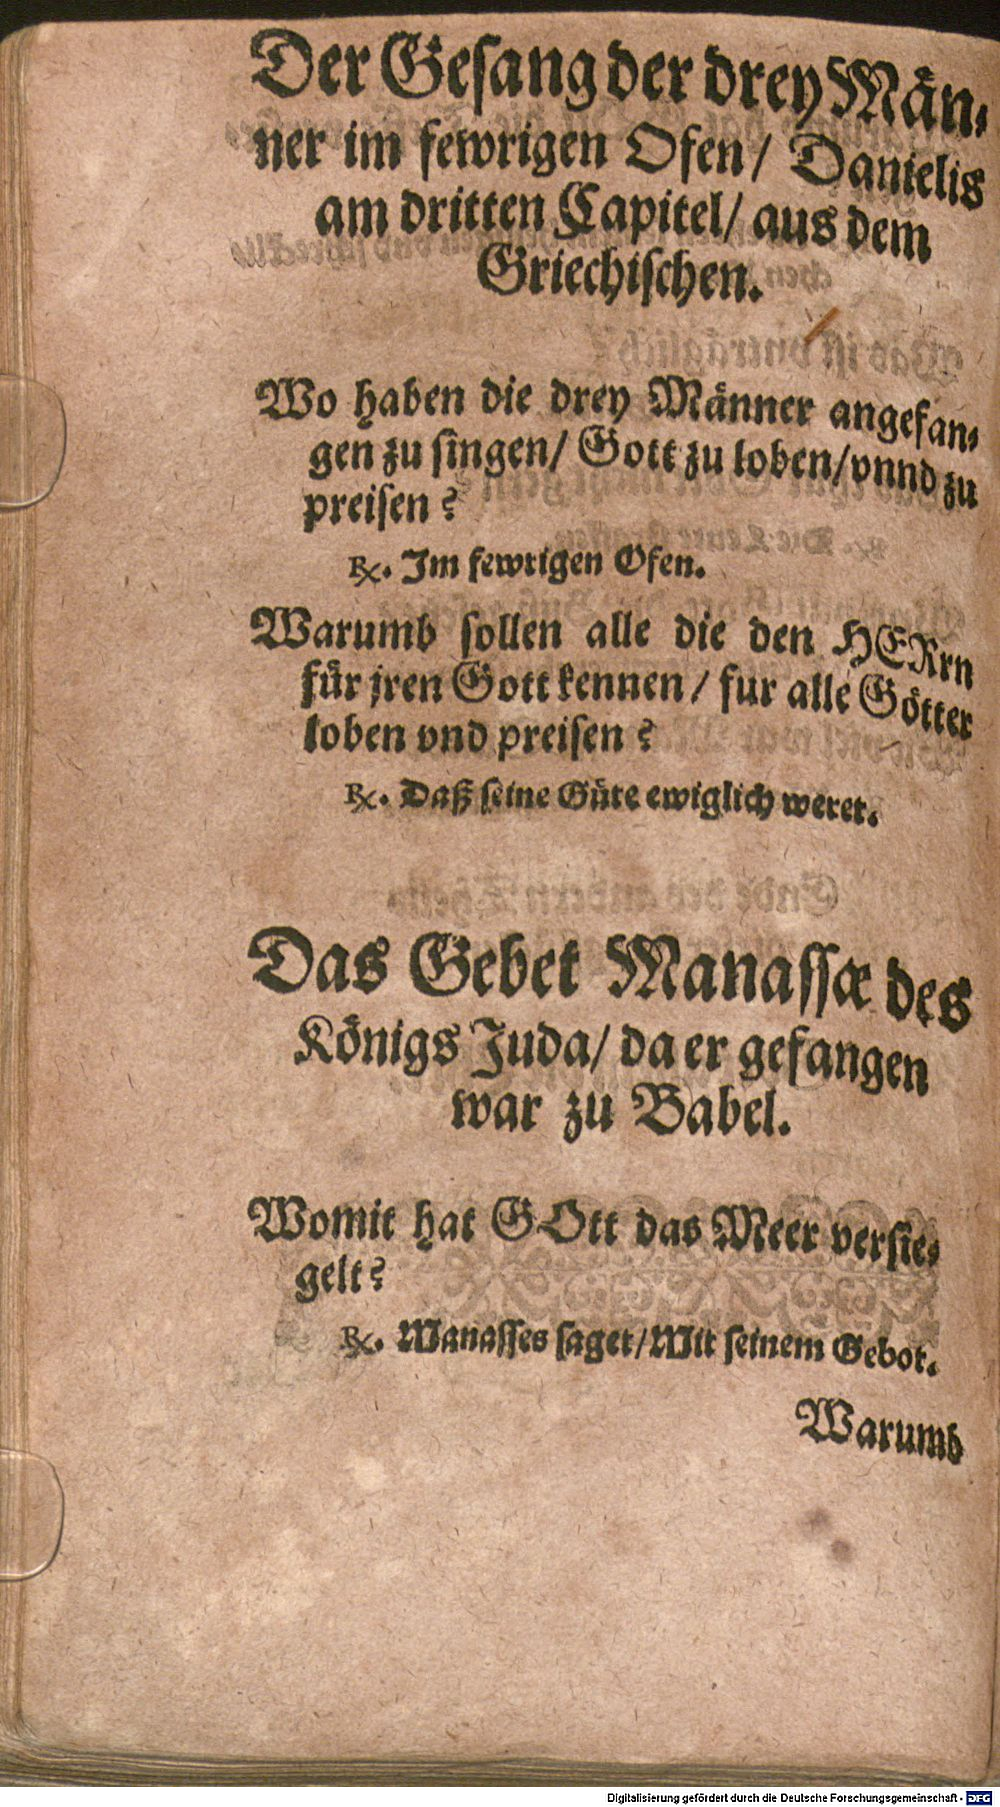 Der Geſang der drey Män⸗
ner im fewrigen Ofen/ Danielis
am dritten Capitel/ aus dem
Griechiſchen.
Wo haben die drey Männer angefan⸗
gen zu ſingen/ Gott zu loben/ vnnd zu
preiſen?
℞. Im fewrigen Ofen.
Warumb ſollen alle die den HERrn
für jren Gott kennen/ fur alle Götter
loben vnd preiſen?
℞. Daß ſeine Güte ewiglich weret.
Das Gebet Manaſſæ des
Königs Juda/ da er gefangen
war zu Babel.
Womit hat GOtt das Meer verſie⸗
gelt?
℞. Manaſſes ſaget/ Mit ſeinem Gebot.
Warumb
Digitalisierung gefördert durch die Deutsche Forschungsgemeinschaft - DFG